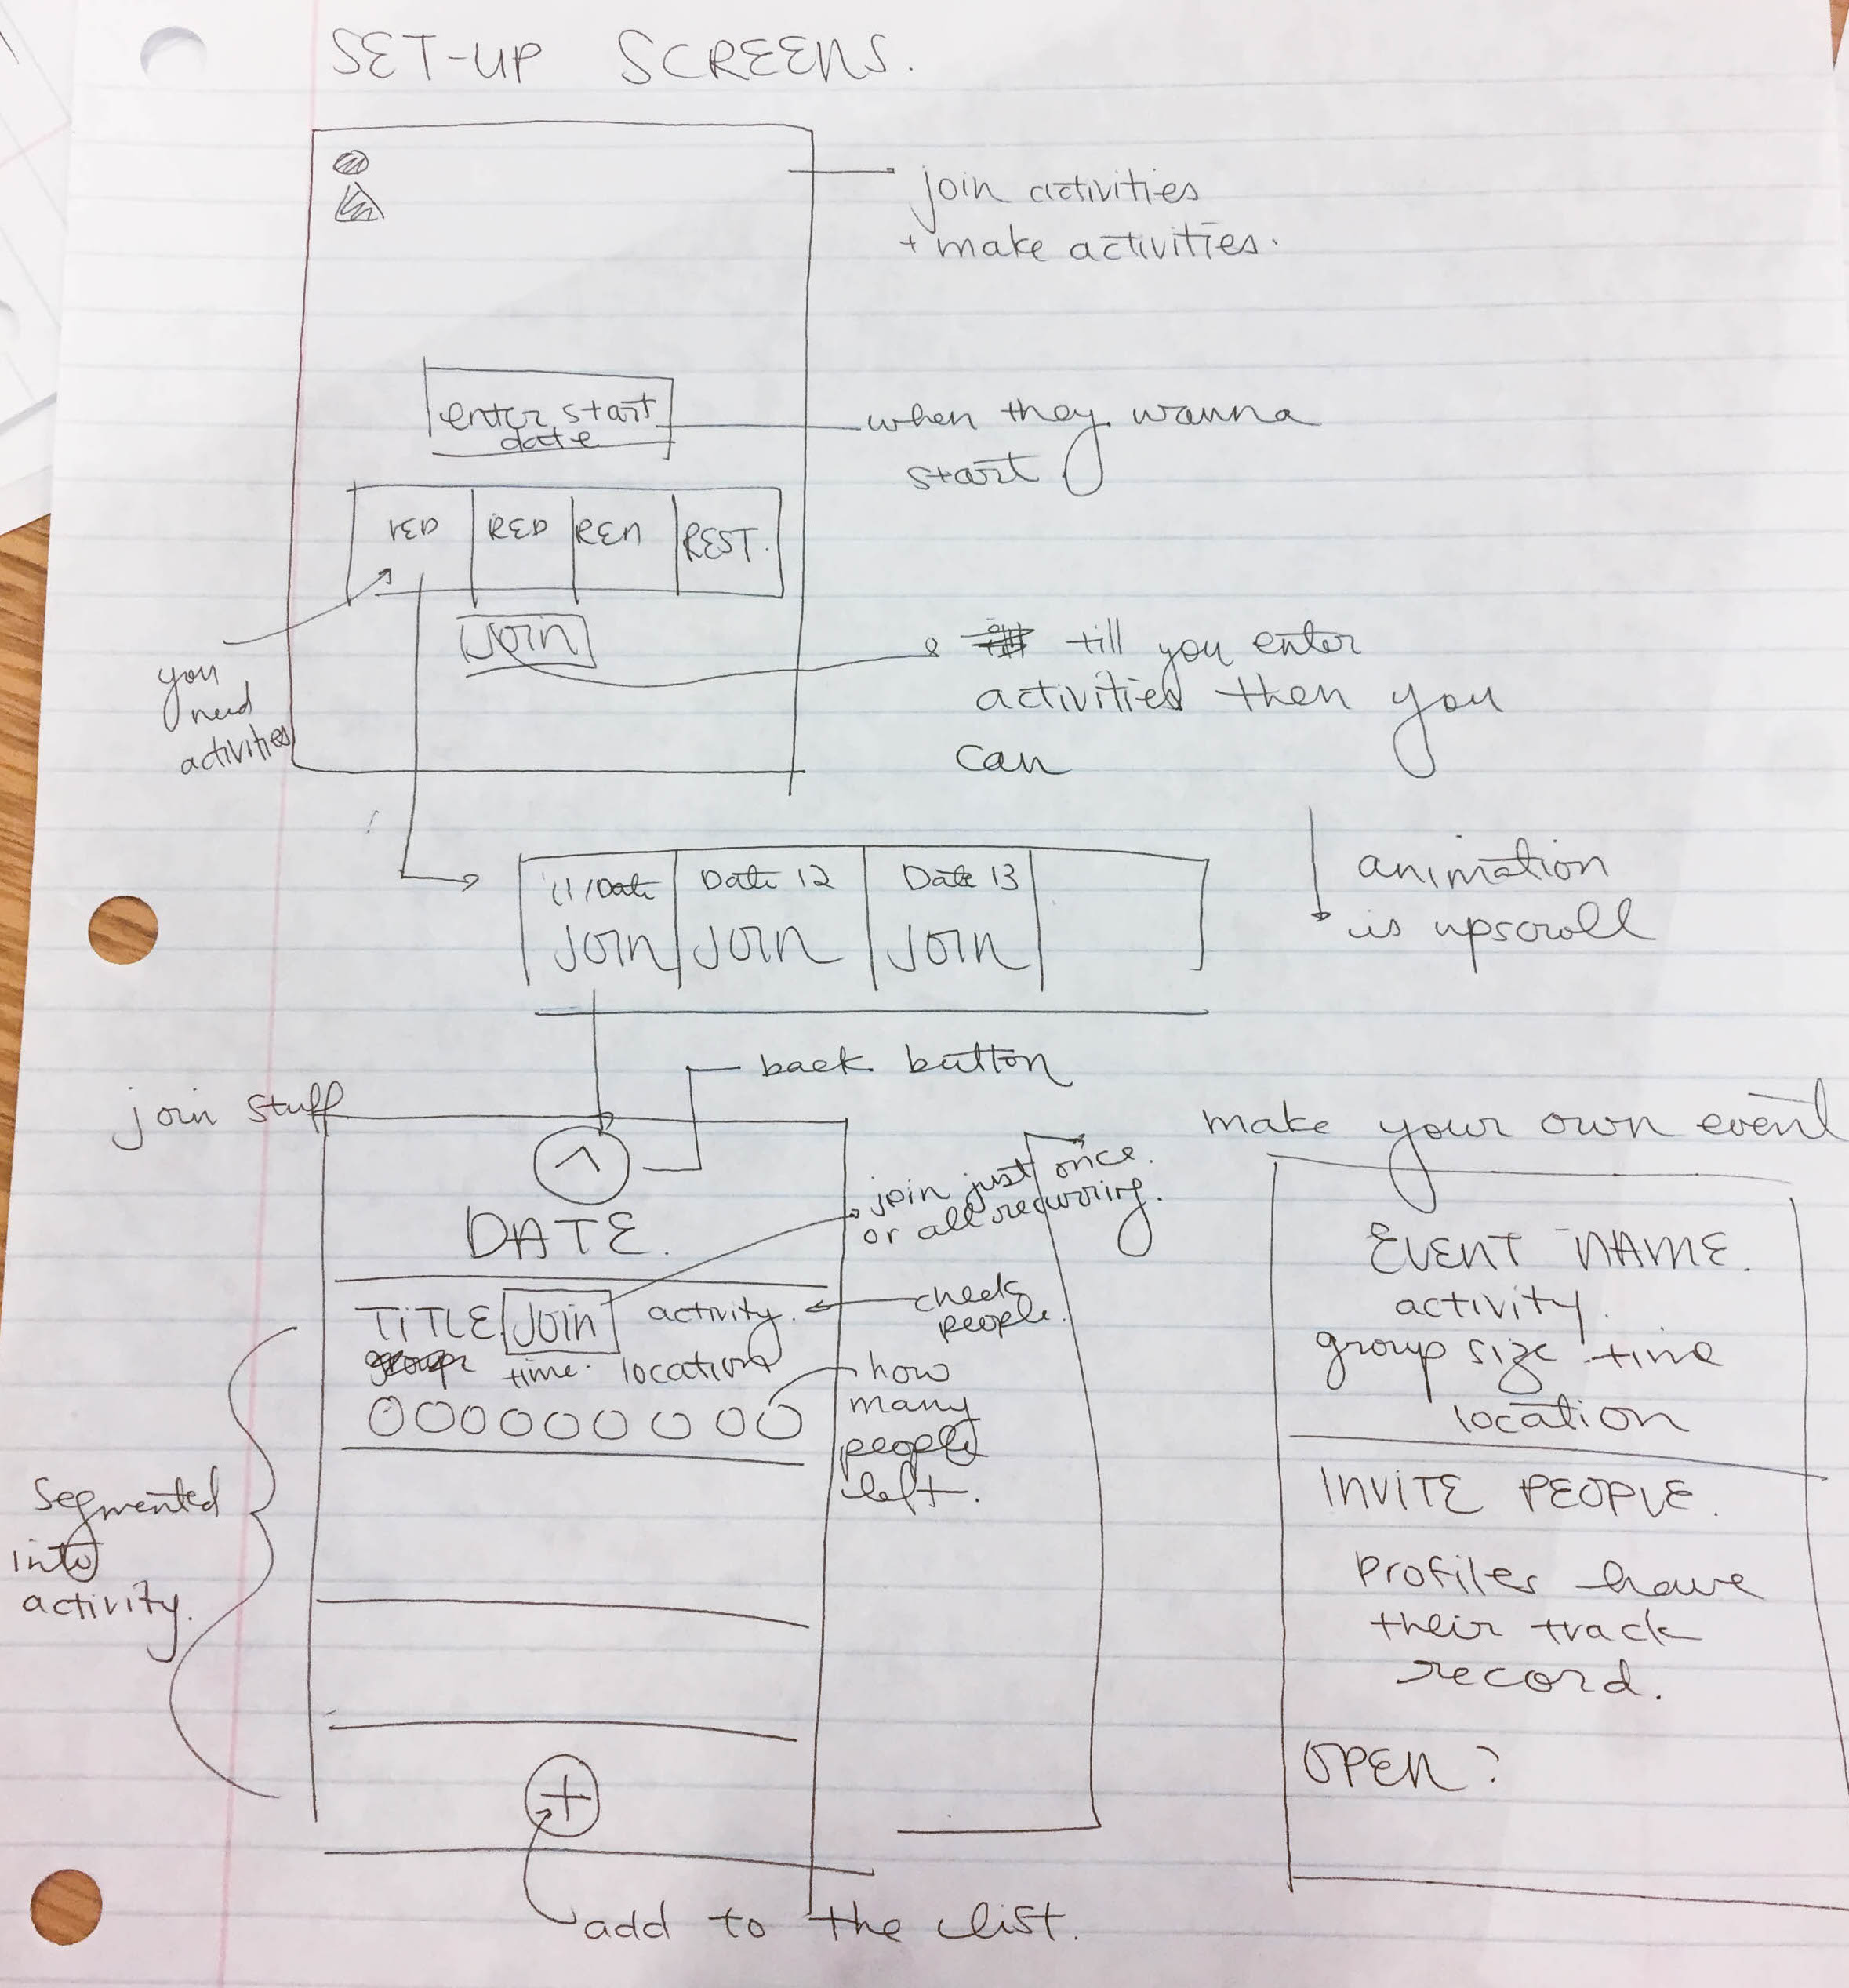 SET-UP SCREENS.
join activities
+ make activities.
enter start
date
when they wanna
start
RED RED REN REST.
JOIN
you
need
activities
till you enter
activities then you
can
11/Date Date 12 Date 13
JOIN JOIN JOIN
animation
is upscroll
back button
join stuff
DATE.
join just once.
or all recurring.
TITLE JOIN activity.
check
people.
time. location
how
many
people
left.
segmented
into
activity.
add to the list.
make your own event
EVENT NAME.
activity.
group size time
location
INVITE PEOPLE.
Profiles have
their track
record.
OPEN?